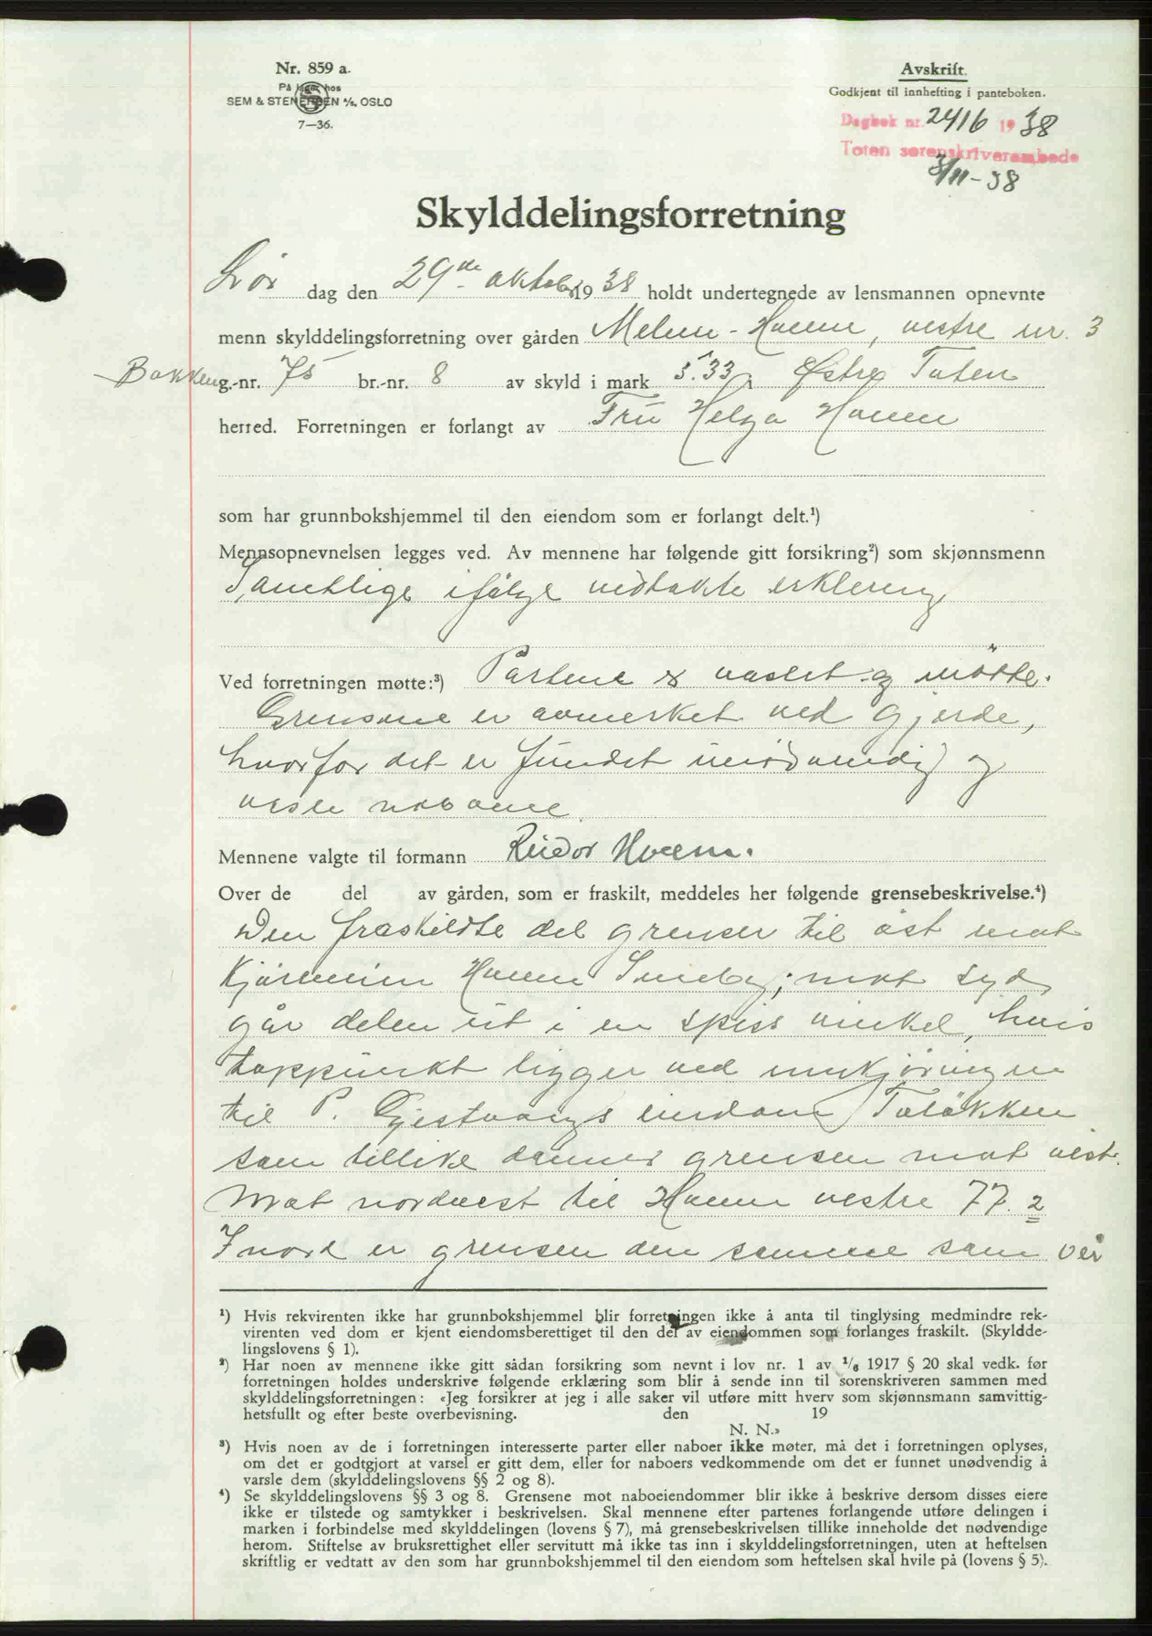 Nr. 859 a.
På lager hos
SEM & STENERSEN A/S, OSLO
7—36.
Avskrift.
Godkjent til innhefting i panteboken.
Dagbok nr. 2416 1938
Toten sorenskriverembede
3/11-38
Skylddelingsforretning
Lør dag den 29de oktober 1938 holdt undertegnede av lensmannen opnevnte
menn skylddelingsforretning over gården Melum-Hveem, vestre nr. 3
Bakken g.-nr. 75 br.-nr. 8 av skyld i mark 5.33, Østre Toten
herred. Forretningen er forlangt av Fru Helga Hveem
som har grunnbokshjemmel til den eiendom som er forlangt delt.¹)
Mennsopnevnelsen legges ved. Av mennene har følgende gitt forsikring²) som skjønnsmenn
Samtlige ifølge vedtakte erklering
Ved forretningen møtte:³) Partene er varslet og møtte.
Grensene er avmerket ved gjerde,
hvorfor det er fundet unødvendig og
varsle naboene.
Mennene valgte til formann Reidor Hveem.
Over de del av gården, som er fraskilt, meddeles her følgende grensebeskrivelse.⁴)
Den fraskildte del grenser til øst mot
Hveem Sameby; mot syd
går delen ut i en spiss vinkel, hvis
toppunkt ligger ved innkjøringen
til P. Gjestvangs eiendom
som tillike danner grensen mot vest.
Mot nordvest til Hveem vestre 77.2
I nord er grensen den samme som vei
¹) Hvis rekvirenten ikke har grunnbokshjemmel blir forretningen ikke å anta til tinglysing medmindre rek-
virenten ved dom er kjent eiendomsberettiget til den del av eiendommen som forlanges fraskilt. (Skyldde-
lingslovens § 1).
²) Har noen av mennene ikke gitt sådan forsikring som nevnt i lov nr. 1 av 1/6 1917 § 20 skal vedk. før
forretningen holdes underskrive følgende erklæring som blir å sende inn til sorenskriveren sammen med
skylddelingsforretningen: «Jeg forsikrer at jeg i alle saker vil utføre mitt hverv som skjønnsmann samvittig-
hetsfullt og efter beste overbevisning. den 19
N. N.»
³) Hvis noen av de i forretningen interesserte parter eller naboer ikke møter, må det i forretningen oplyses,
om det er godtgjort at varsel er gitt dem, eller for naboers vedkommende om det er funnet unødvendig å
varsle dem (skylddelingslovens §§ 2 og 8).
⁴) Se skylddelingslovens §§ 3 og 8. Grensene mot naboeiendommer blir ikke å beskrive dersom disses eiere
ikke er tilstede og samtykker i beskrivelsen. Skal mennene efter partenes forlangende utføre delingen i
marken i forbindelse med skylddelingen (lovens § 7), må grensebeskrivelsen tillike inneholde det nødvendige
herom. Stiftelse av bruksrettighet eller servitutt må ikke tas inn i skylddelingsforretningen, uten at heftelsen
skriftlig er vedtatt av den som har grunnbokshjemmel til den eiendom som heftelsen skal hvile på (lovens § 5).